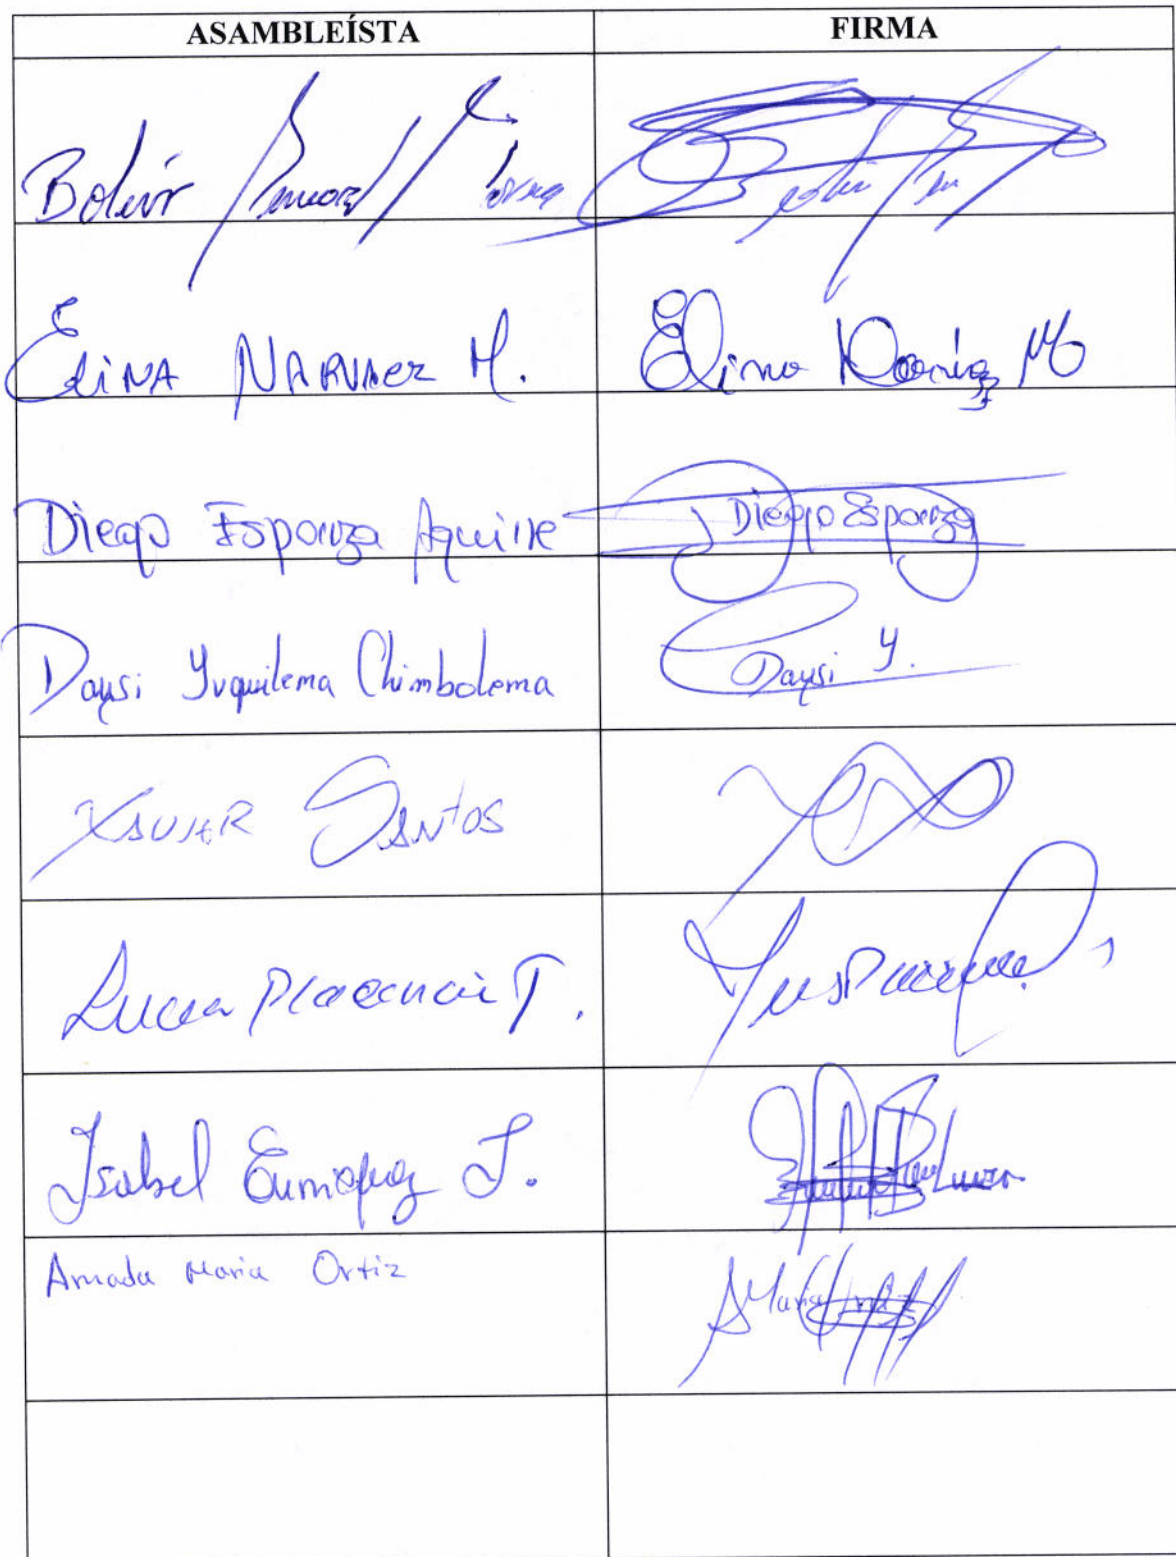 ASAMBLEÍSTA FIRMA
Bolivir
ElINA NARVAez M. Elina Narváez M
Diego Esparza Aguirre Diego Esparza
Daysi Yuquilema Chimbolema Daysi Y.
XAVIER SANTOS
Lucia Placencia T.
Isabel Enrriquez J.
Amada Maria Ortiz Maria Ortiz